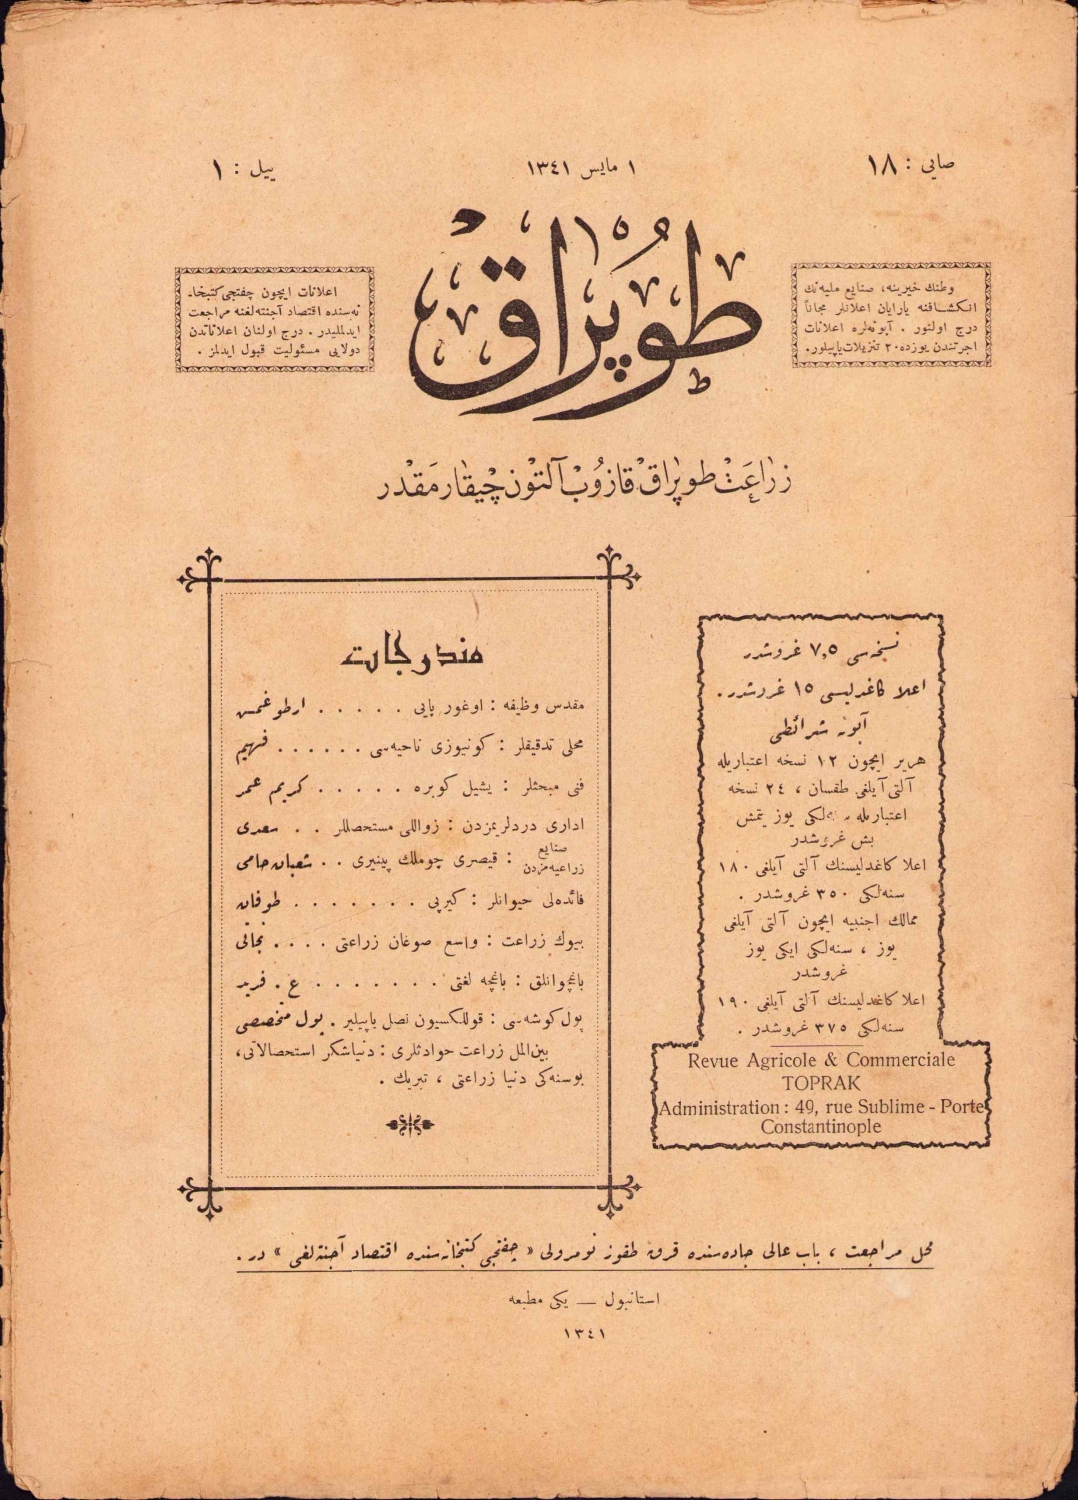 صایی : ١٨
١ مایس ١٣٤١
ییل : ١
طوپراق
وطنك خیرینه، صنایع ملیه‌نك
انكشافنه یارایان اعلانلر مجاناً
درج اولنور . آبونه‌لره اعلانات
اجرتندن یوزده ٢٠ تنزیلات یاپیلور.
اعلانات ایچون چفتجی كتبخا-
نه‌سنده اقتصاد آجنته‌لغنه مراجعت
ایدلملیدر . درج اولنان اعلاناتدن
دولایی مسئولیت قبول ایدلمز .
زراعت طوپراق قازوب آلتون چیقارمقدر
مندرجات
مقدس وظیفه : اوغور پایی . . . . . ارطوغمس
محلی تدقیقلر : كونیوزی ناحیه‌سی . . . . . . فهیم
فنی مبحثلر : یشیل كوبره . . . . . كریم عمر
اداری دردلریمزدن : زواللی مستحصللر . . سعدی
صنایع زراعیه‌مزدن : قیصری چوملك پینیری . . شعبان حامی
فائده‌لی حیوانلر : كیرپی . . . . . . . طوقان
بیوك زراعت : واسع صوغان زراعتی . . . . نجاتی
باغچوانلق : باغچه لغتی . . . . . . . ع . فرید
پول كوشه‌سی : قوللكسیون نصل یاپیلیر . پول متخصصی
بین‌الملل زراعت حوادثلری : دنیا شكر استحصالاتی،
بوسنه‌كی دنیا زراعتی ، تبریك .
نسخه‌سی ٧,٥ غروشدر
اعلا كاغدلیسی ١٥ غروشدر .
آبونه شرائطی
هریر ایچون ١٢ نسخه اعتباریله
آلتی آیلغی طقسان ، ٢٤ نسخه
اعتباریله سنه‌لكی یوز یتمش
بش غروشدر
اعلا كاغدلیسنك آلتی آیلغی ١٨٠
سنه‌لكی ٣٥٠ غروشدر .
ممالك اجنبیه ایچون آلتی آیلغی
یوز ، سنه‌لكی ایكی یوز
غروشدر
اعلا كاغدلیسنك آلتی آیلغی ١٩٠
سنه‌لكی ٣٧٥ غروشدر .
Revue Agricole & Commerciale
TOPRAK
Administration : 49, rue Sublime - Porte
Constantinople
محل مراجعت ، باب عالی جاده‌سنده قرق طقوز نومرولی « چفتجی كتبخانه‌سنده اقتصاد آجنته‌لغی » در .
استانبول — یكی مطبعه
١٣٤١